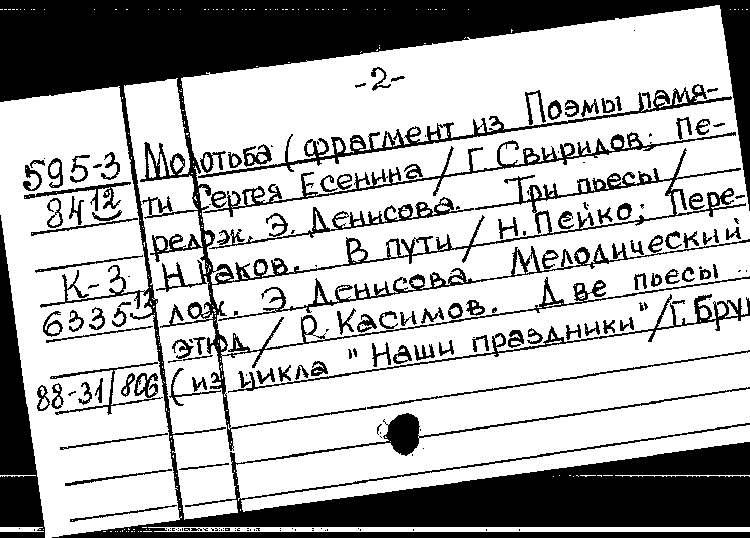 -2-
595-3 Молотьба (фрагмент из Поэмы памя-
84 12 ти Сергея Есенина / Г Свиридов; Пе-
релож. Э. Денисова. Три пьесы /
К-3 Н. Раков. В пути / Н. Пейко; Пере-
6335 12 лож. Э. Денисова. Мелодический
этюд / Р. Касимов. Две пьесы
88-31/806 (из цикла "Наши праздники" / Г. Брун